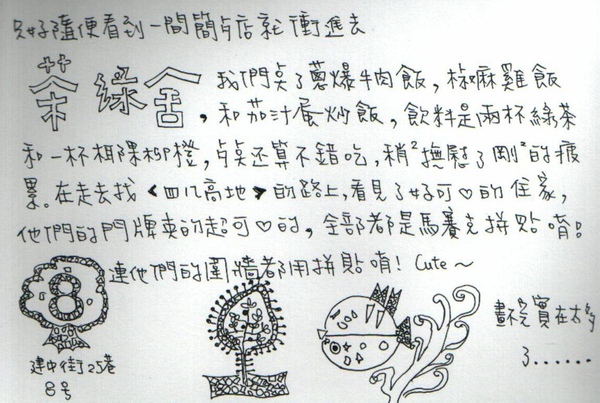 只好隨便看到一間簡餐店就衝進去
茶綠舍 我們點了蔥爆牛肉飯，椒麻雞飯
，和茄汁蛋炒飯，飲料是兩杯綠茶
和一杯椰果柳橙，餐还算不錯吃，稍²撫慰了剛²的疲
累。在走去找《四八高地》的路上，看見了好可♡的住家，
他們的門牌真的超可♡的，全部都是馬賽克拼貼唷!
連他們的圍牆都用拼貼唷! Cute~
8
建中街25巷
8号
畫不完實在太多
了......